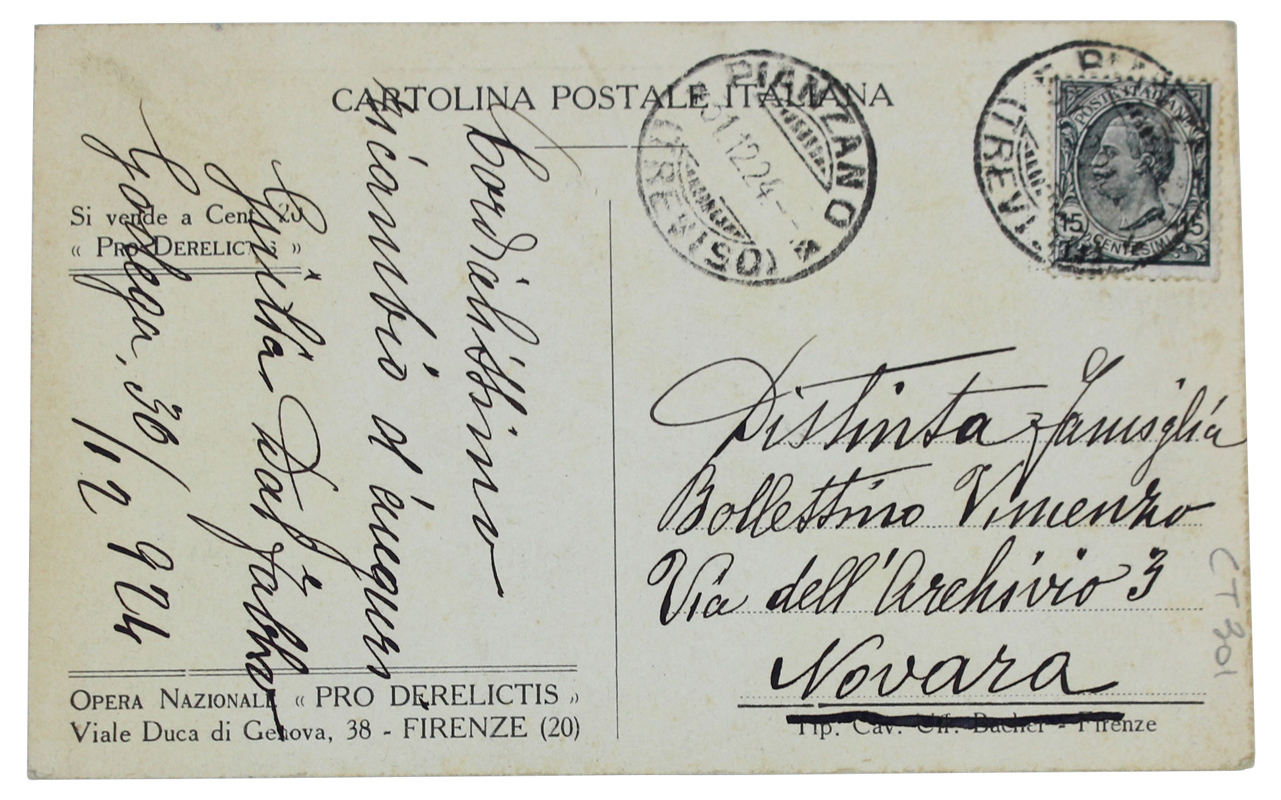 CARTOLINA POSTALE ITALIANA
Si vende a Cent. 20
« PRO DERELICTIS »
Cordialissimo
ricambio d'auguri
Godega, 30/12 924
OPERA NAZIONALE « PRO DERELICTIS »
Viale Duca di Genova, 38 - FIRENZE (20)
PIANZANO
31.12.24
POSTE ITALIANE
15 CENTESIMI 15
Distinta Famiglia
Bollettino Vincenzo
Via dell'Archivio 3
Novara
Tip. Cav. Uff. Bacher - Firenze
CT 301